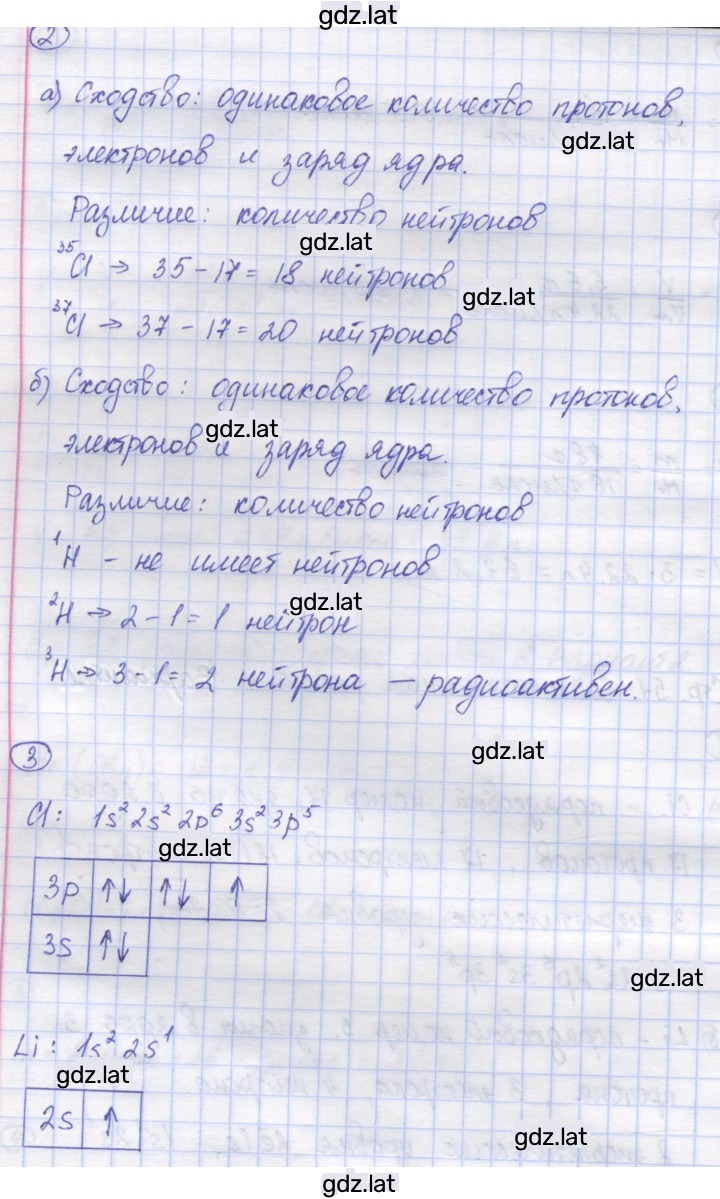 gdz.lat
2
а) Сходство: одинаковое количество протонов,
gdz.lat
электронов и заряд ядра.
Различие: количество нейтронов
gdz.lat
³⁵Cl → 35 - 17 = 18 нейтронов
gdz.lat
³⁷Cl → 37 - 17 = 20 нейтронов
б) Сходство: одинаковое количество протонов,
gdz.lat
электронов и заряд ядра.
Различие: количество нейтронов
¹H - не имеет нейтронов
gdz.lat
²H → 2 - 1 = 1 нейтрон
³H → 3 - 1 = 2 нейтрона — радиоактивен.
gdz.lat
3
Cl: 1s² 2s² 2p⁶ 3s² 3p⁵
gdz.lat
3p ↑↓ ↑↓ ↑
3s ↑↓
gdz.lat
Li: 1s² 2s¹
gdz.lat
2s ↑
gdz.lat
gdz.lat